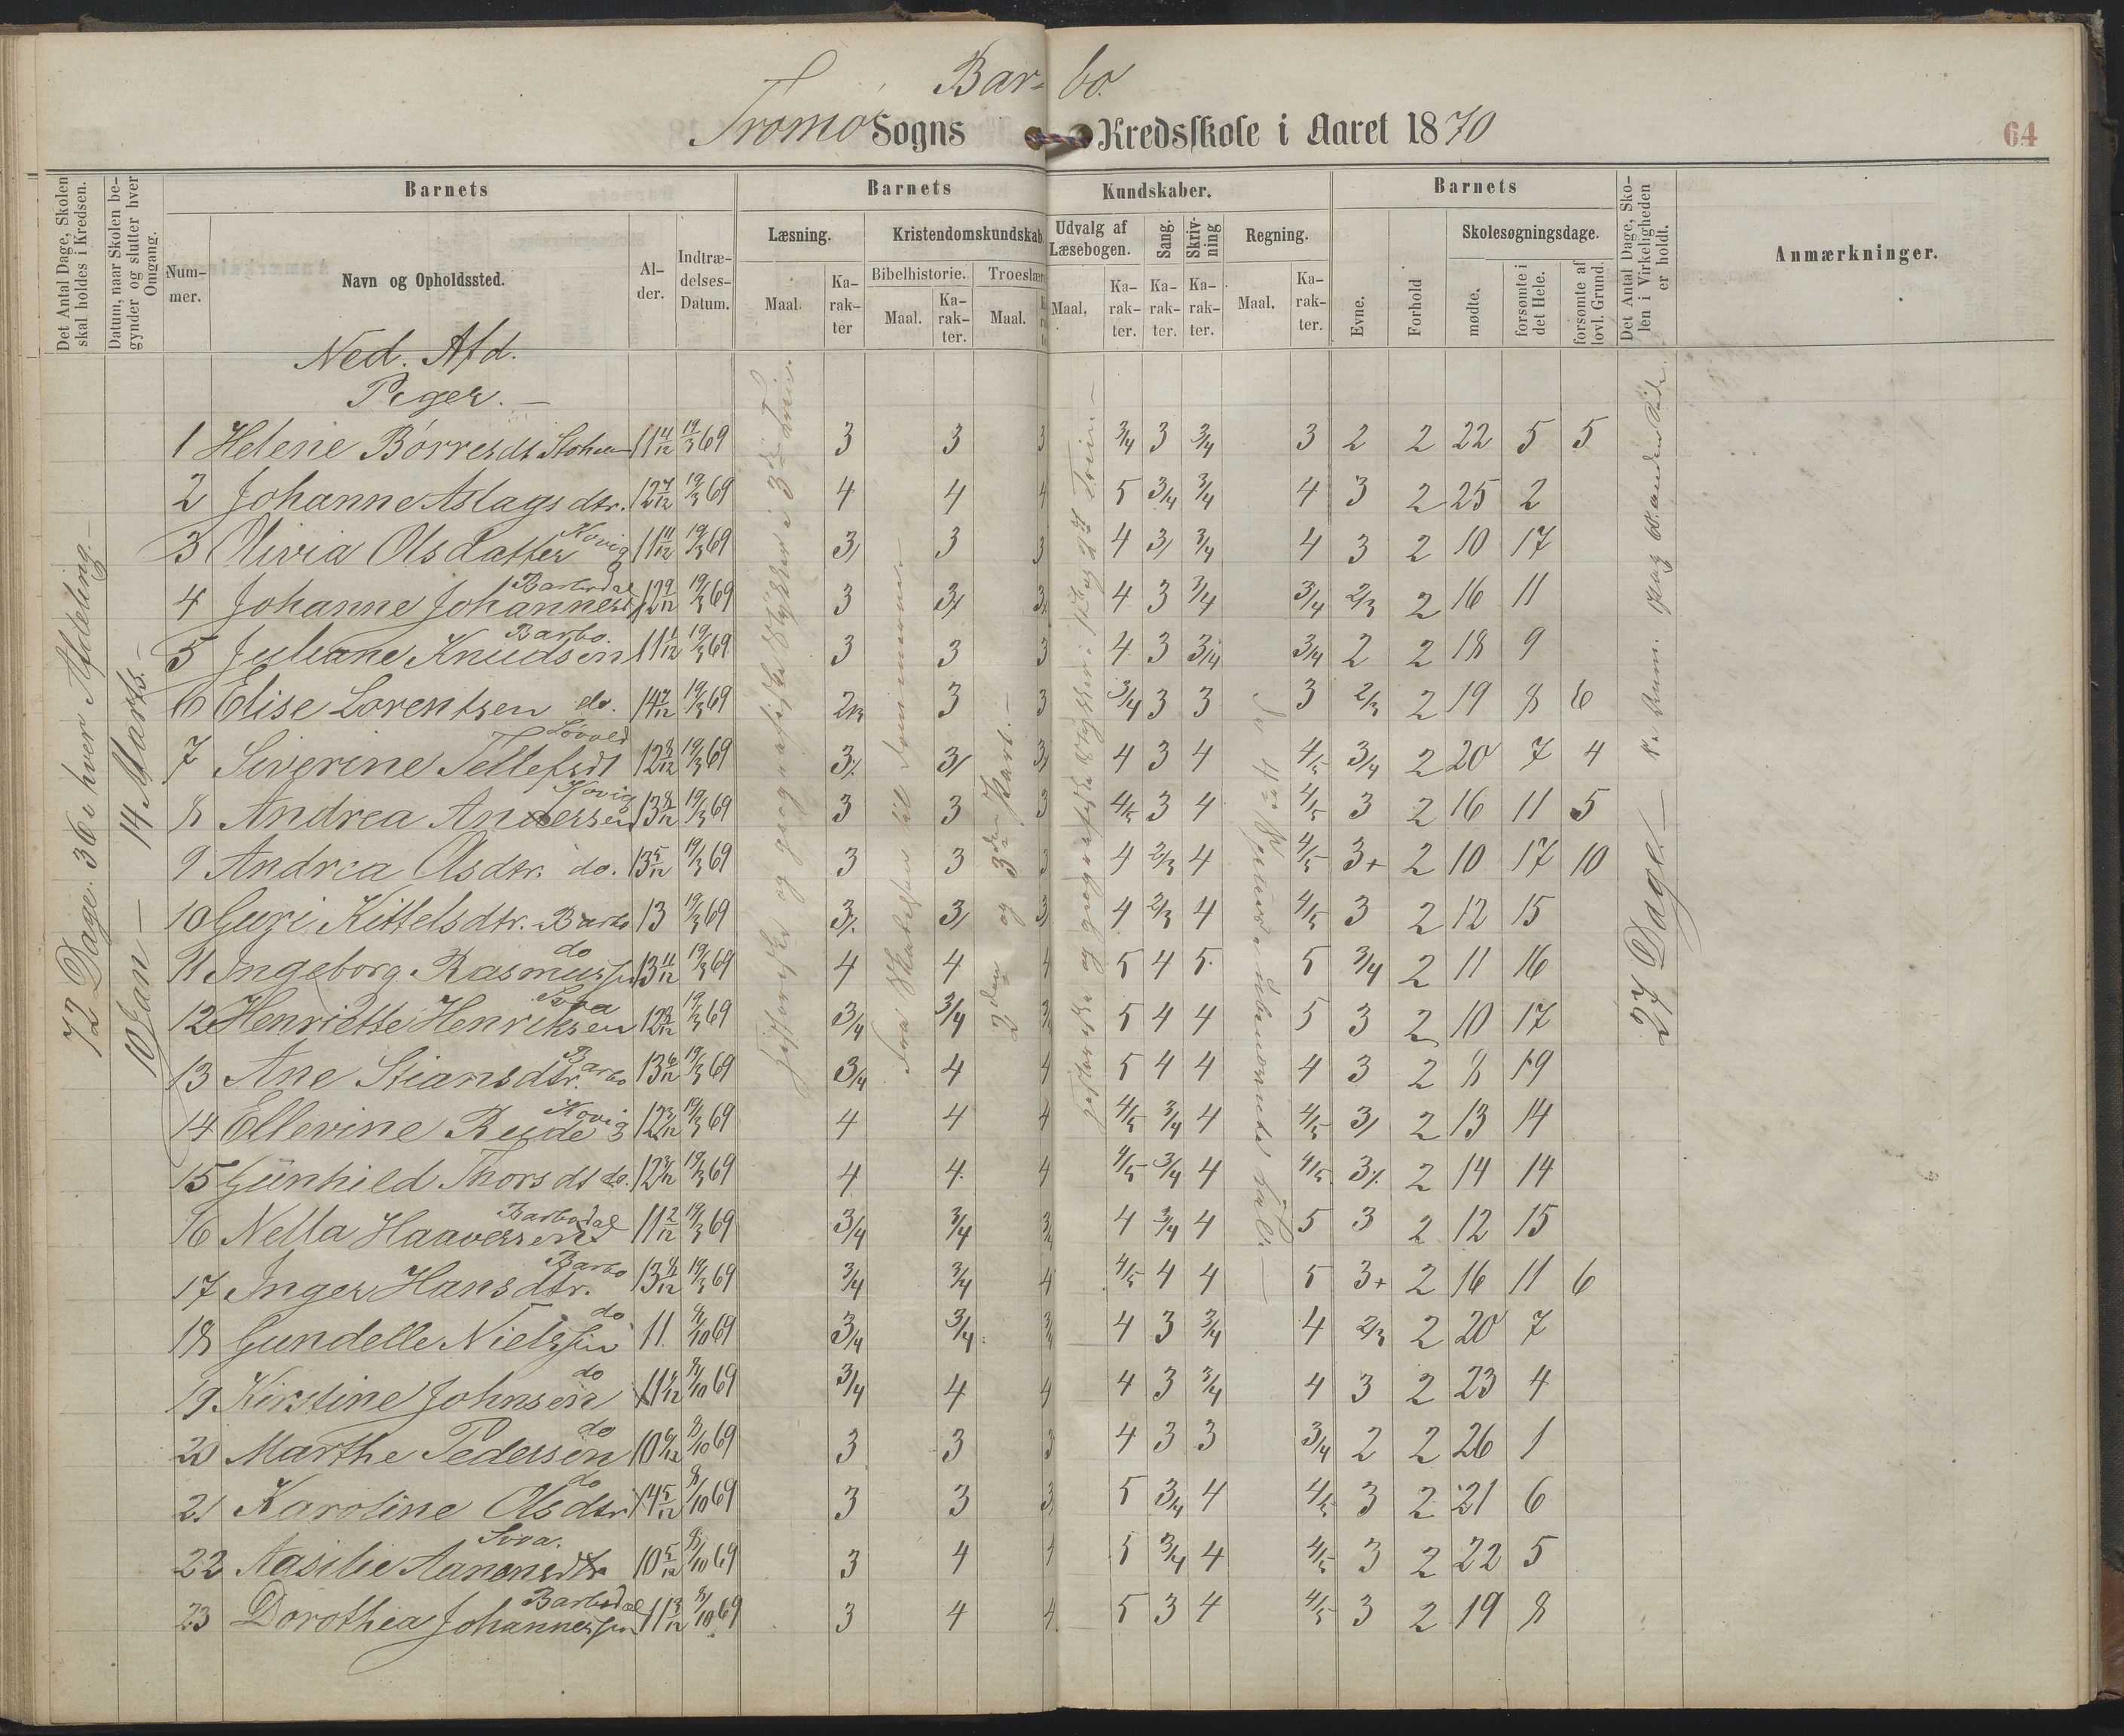 Bar- bo.
Tromø Sogns Kredsskole i Aaret 1870
64
Det Antal Dage, Skolen skal holdes i Kredsen.
Datum, naar Skolen begynder og slutter hver Omgang.
Barnets
Barnets Kundskaber.
Barnets
Det Antal Dage, Skolen i Virkeligheden er holdt.
Anmærkninger.
Nummer.
Navn og Opholdssted.
Alder.
Indtrædelses-Datum.
Læsning.
Kristendomskundskab.
Udvalg af Læsebogen.
Sang.
Skrivning
Regning.
Evne.
Forhold
Skolesøgningsdage.
Bibelhistorie.
Troeslære
Maal.
Karakter
Maal.
Karakter.
Maal.
Maal.
Karakter.
Karakter.
Karakter.
Maal.
Karakter.
mødte.
forsømte i det Hele.
forsømte af lovl. Grund.
72 Dage. 36 i hver Afdeling.-
10 Jan - 14 Marts.-
Ned. Afd.
Piger.-
1 Helene Børresdt 11 4/12 19/3 69 3 3 3 3/4 3 3/4 3 2 2 22 5 5
2 Johanne Aslagsdtr. 12 7/12 19/3 69 4 4 4 5 3/4 3/4 4 3 2 25 2
3 Olivia Olsdatter 11 11/12 19/3 69 3 3 3 4 3 3/4 4 3 2 10 17
4 Johanne Johannesdt Barbodal 12 9/12 19/3 69 3 3 3 4 3 3/4 3/4 2/3 2 16 11
5 Juliane Knudsen Barbo. 11 1/12 19/3 69 3 3 3 4 3 3/4 3/4 2 2 18 9
6 Elise Lorentzen do. 14 7/12 19/3 69 2/3 3 3 3/4 3 3 3 2/3 2 19 8 6
7 Siverine Tellefsdt 12 8/12 19/3 69 3 3 3 4 3 4 4/5 3/4 2 20 7 4
8 Andrea Andersen 13 8/12 19/3 69 3 3 3 4/5 3 4 4/5 3 2 16 11 5
9 Andrea Olsdtr. do. 13 5/12 19/3 69 3 3 3 4 2/3 4 4/5 3+ 2 10 17 10
10 Guri Kittelsdtr. Barbo 13 19/3 69 3 3 3 4 2/3 4 4/5 3 2 12 15
11 Ingeborg Rasmussen do 13 11/12 19/3 69 4 4 4 5 4 5 5 3/4 2 11 16
12 Henriette Henriksen 12 8/12 19/3 69 3/4 3/4 3/4 5 4 4 5 3 2 10 17
13 Ane Stiansdtr. Barbo 13 6/12 19/3 69 3/4 4 4 5 4 4 4 3 2 8 19
14 Ellevine 12 3/12 19/3 69 4 4 4 4/5 3/4 4 4/5 3 2 13 14
15 Gunhild Thorsdt do. 12 19/3 69 4 4 4 4/5 3/4 4 4/5 3 2 14 14
16 Nella Haaversen Barbodal 11 2/12 19/3 69 3/4 3/4 3/4 4 3/4 4 5 3 2 12 15
17 Inger Hansdtr. Barbo 13 8/12 19/3 69 3/4 3/4 4 4/5 4 4 5 3+ 2 16 11 6
18 Gundelle Nielssen do 11 8/10 69 3/4 3/4 3/4 4 3 3/4 4 2/3 2 20 7
19 Kirstine Johnsen do 11 8/10 69 3/4 4 4 4 3 3/4 4 3 2 23 4
20 Marthe Pedersen do 10 8/10 69 3 3 3 4 3 3 3/4 2 2 26 1
21 Karoline Olsdtr do 14 5/12 8/10 69 3 3 3 5 3/4 4 4/5 3 2 21 6
22 Aasilie Aanonsdtr 10 5/12 8/10 69 3 4 4 5 3/4 4 4/5 3 2 22 5
23 Dorothea Johannessen Barbodal 11 3/12 8/10 69 3 4 4 5 3 4 4/5 3 2 19 8
2den og 3die Part.-
27 Dage.-